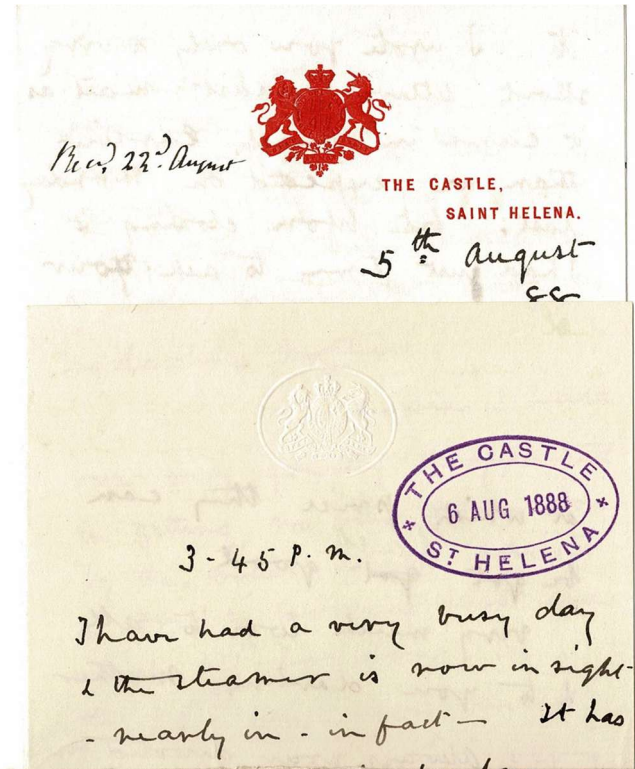 Recd. 22d. August
THE CASTLE,
SAINT HELENA.
5th August
88
THE CASTLE
6 AUG 1888
ST HELENA
3-45 P.M.
I have had a very busy day
& the steamer is now in sight-
- nearly in - in fact - It has